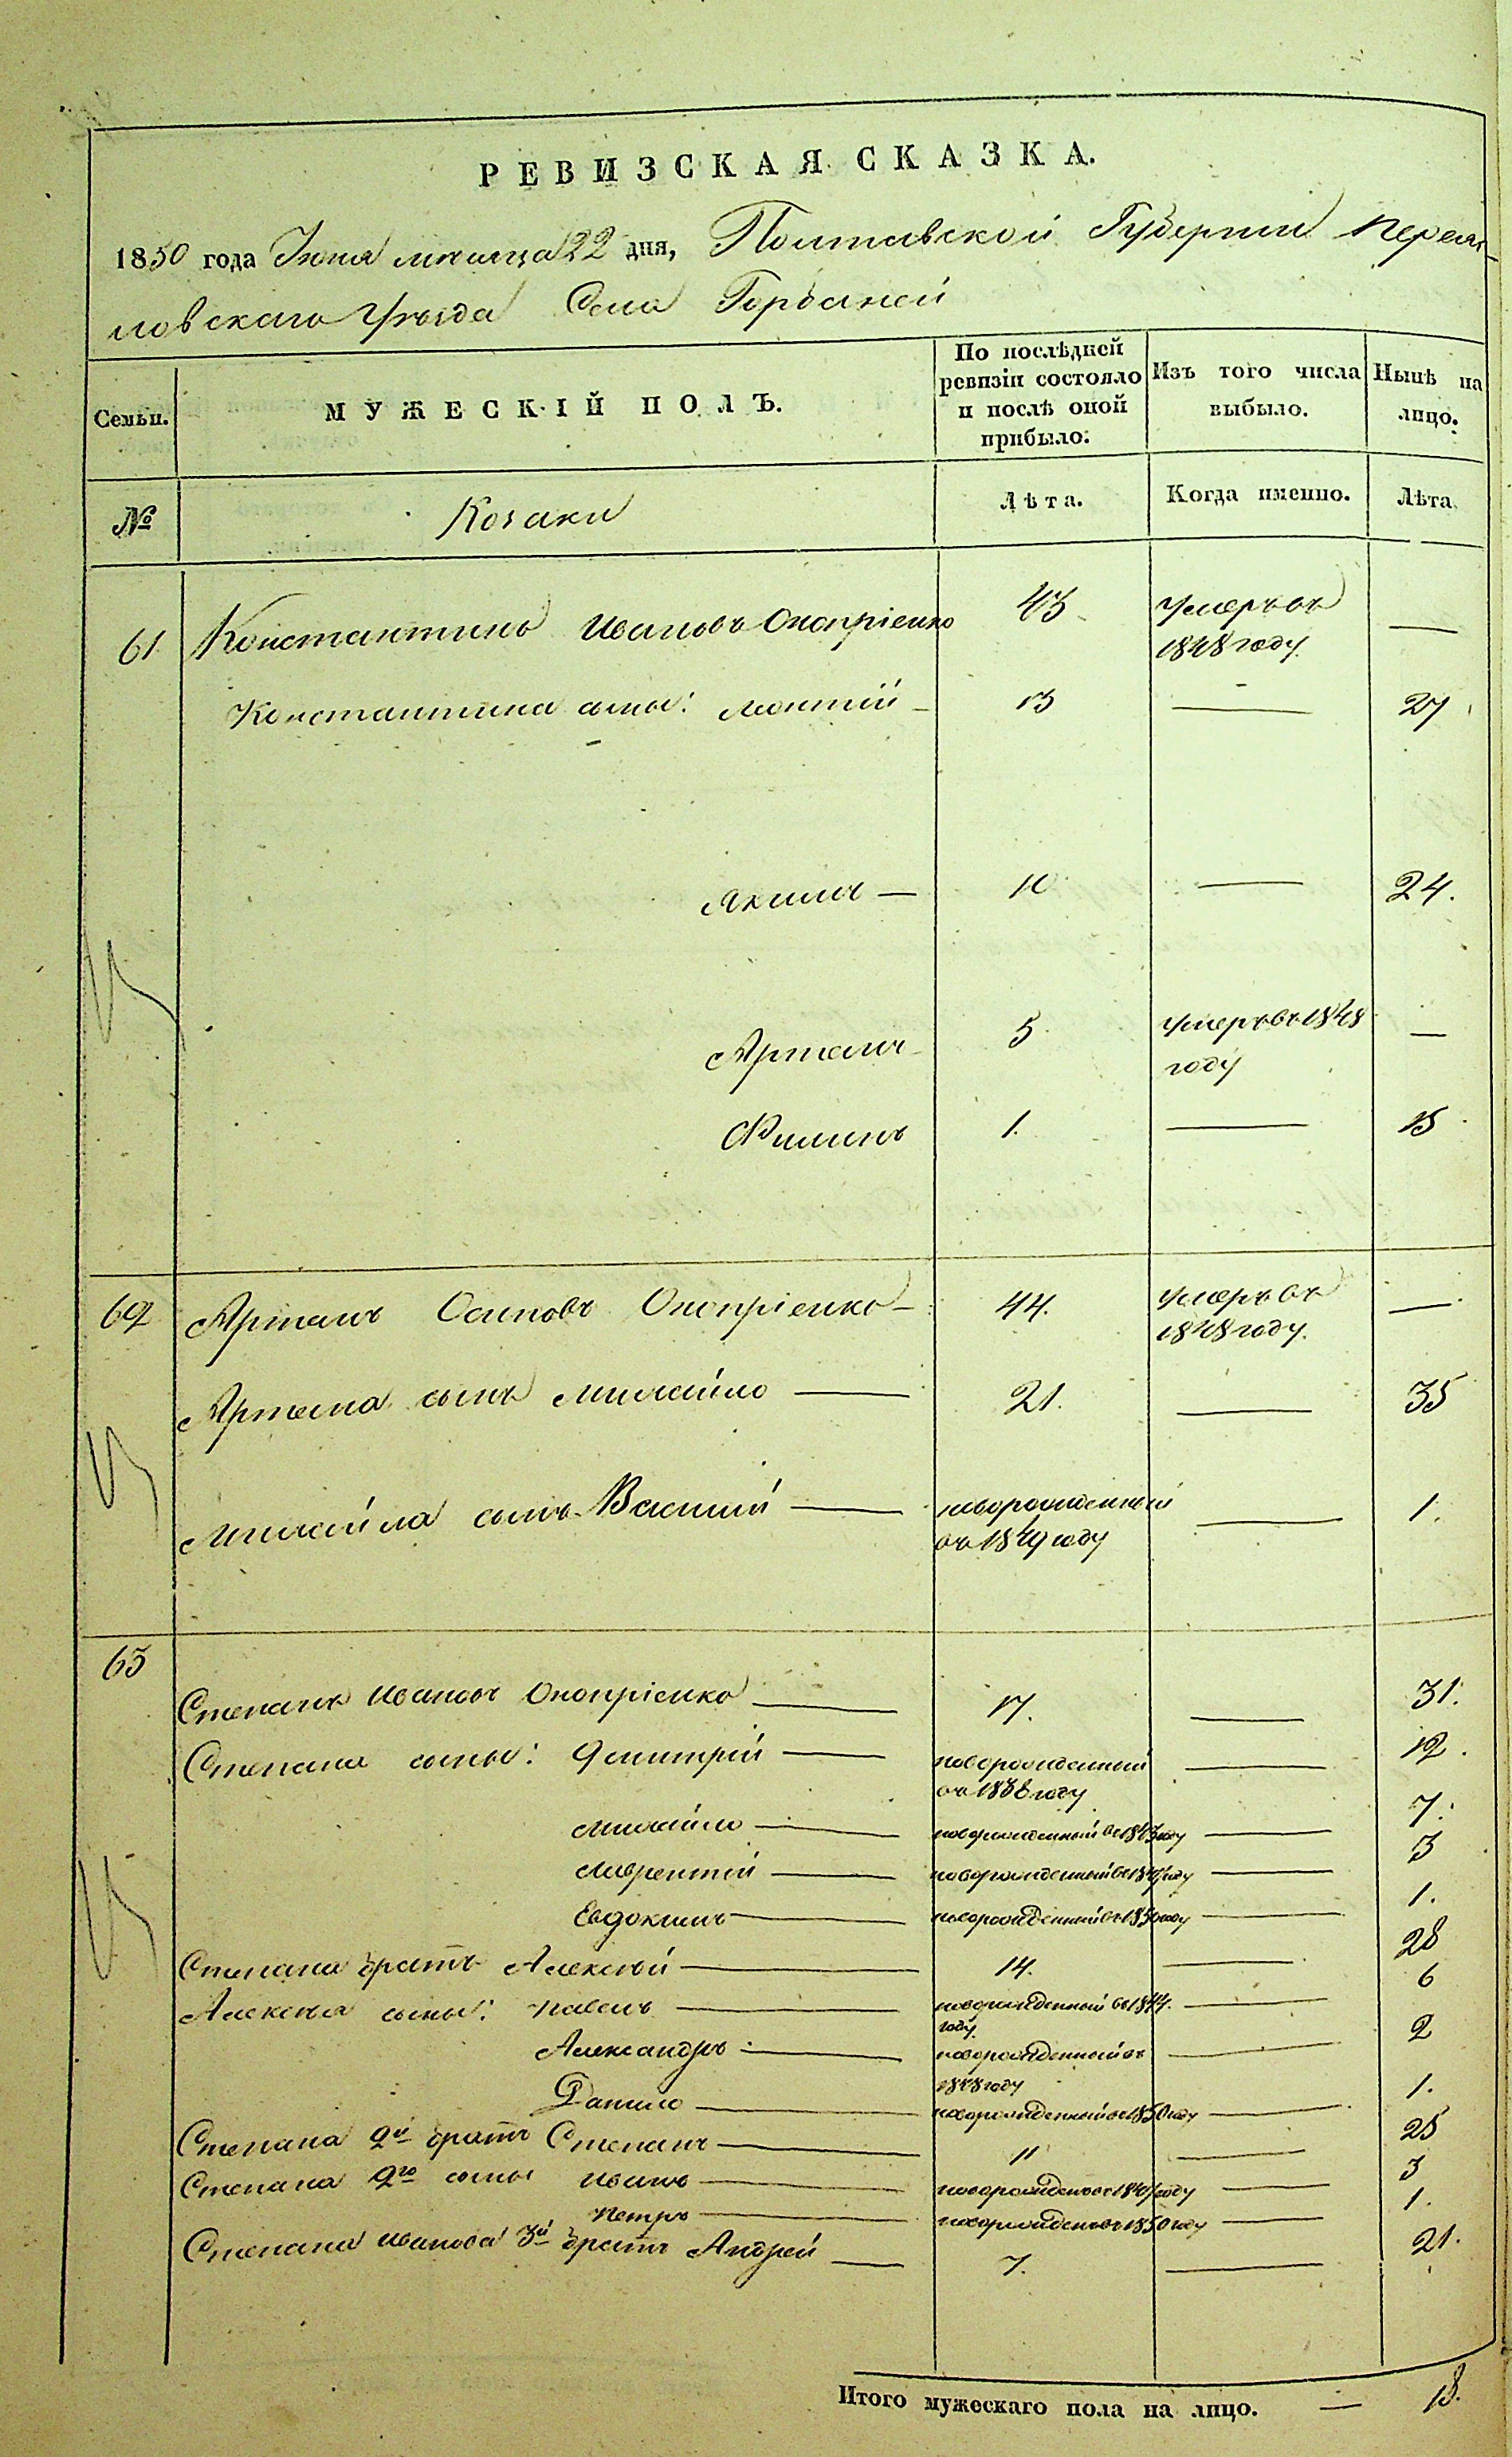 РЕВИЗСКАЯ СКАЗКА.
1850 года Июня месяца 22 дня, Полтавской Губернии Переяс-
ловского Уѣзда Села Горбаней
Семьи.
МУЖЕСКІЙ ПОЛЪ.
По послѣдней ревизіи состояло и послѣ оной прибыло.
Изъ того числа выбыло.
Нынѣ на лицо.
№
Козаки
Лѣта.
Когда именно.
Лѣта.
61 Константинъ Ивановъ Оноприенко 43 Умеръ въ 1848 году. —
Константина сыны: Леонтій — 13 — 27
Якимъ — 10 — 24.
Артемъ 5 Умеръ въ 1848 году —
Филипъ 1. — 15
62 Артемъ Осиповъ Онопріенко — 44. Умеръ въ 1848 году. —
Артема сынъ Михайло — 21. — 35
Михайла сынъ Василій — новорожденный въ 1849 году — 1.
63
Степанъ Ивановъ Онопріенко — 17. — 31.
Степана сыны: Дмитрій — новорожденный въ 1838 году — 12.
Михайло — новорожденный въ 1843 году — 7.
Лаврентій — новорожденный въ 1847 году — 3
Евдокимъ — новорожденный въ 1850 году — 1.
Степана братъ Алексѣй — 14. — 28
Алексѣя сыны: Павелъ — новорожденный въ 1844. году — 6
Александръ — новорожденный въ 1848 году — 2
Данило — новорожденный въ 1850 году — 1.
Степана 2й братъ Степанъ — 11 — 25
Степана 2го сыны Иванъ — новорожденъ въ 1847 году — 3
Петръ — новорожденъ въ 1850 году — 1.
Степана Иванова 3й братъ Андрей — 7. — 21.
Итого мужескаго пола на лицо. — 18.